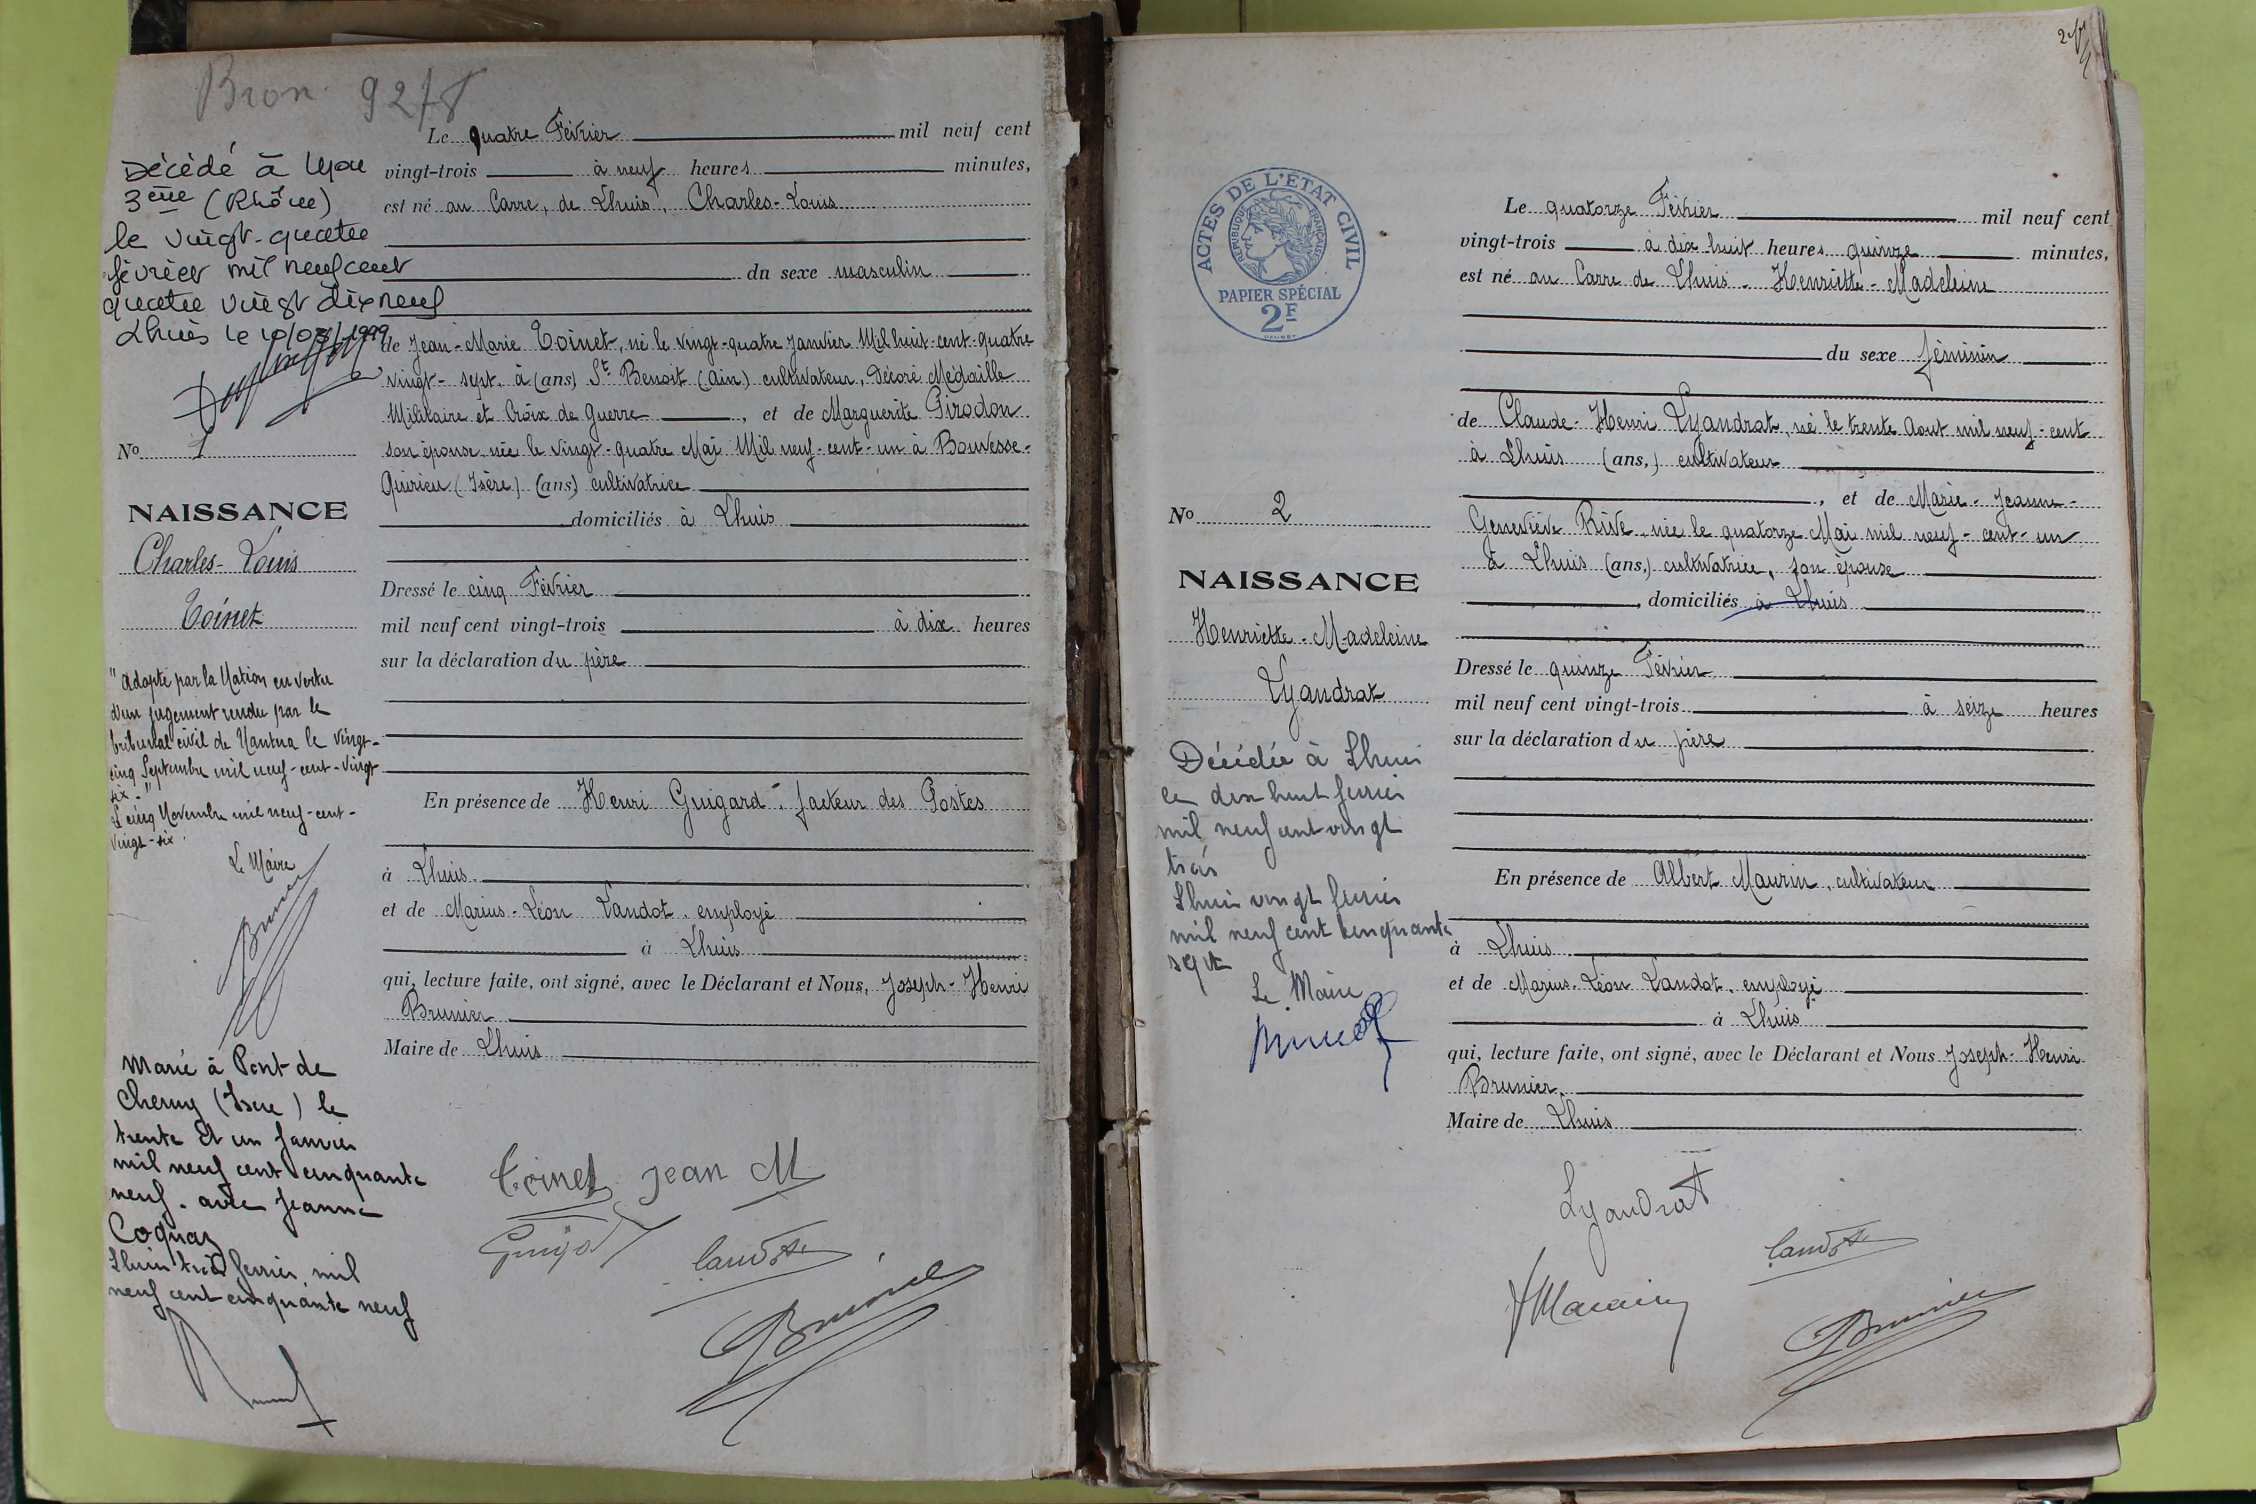 Bron 92/8
Décédé à Lyon
3ème (Rhône)
le vingt-quatre
février mil neuf cent
quatre vingt dix neuf
Lhuis le 10/03/1999
No 1
NAISSANCE
Charles-Louis
Toinet
"Adopté par la Nation en vertu
d'un jugement rendu par le
tribunal civil de Nantua le vingt-
cinq Septembre mil neuf-cent-vingt
six."
Le cinq Novembre mil neuf-cent-
vingt-six.
Le Maire
Brunier
Marié à Pont de
Cheruy (Isère) le
trente et un Janvier
mil neuf cent cinquante
neuf. avec Jeanne
Coquaz
Lhuis trois ferrier mil
neuf cent cinquante neuf
Le quatre Février mil neuf cent
vingt-trois à neuf heures minutes,
est né au Carre, de Lhuis, Charles-Louis
du sexe masculin
de Jean-Marie Toinet, né le vingt-quatre Janvier Mil huit-cent-quatre
vingt-sept, à (ans) St Benoit (Ain) cultivateur, Décoré Médaille
Militaire et Croix de Guerre, et de Marguerite Girodon
son épouse née le vingt-quatre Mai Mil neuf-cent-un à Bouvesse-
Quirieu (Isère) (ans) cultivatrice
domiciliés à Lhuis
Dressé le cinq Février
mil neuf cent vingt-trois à dix heures
sur la déclaration du père
En présence de Henri Guigard, facteur des Postes
à Lhuis
et de Marius-Léon Landot, employé
à Lhuis
qui, lecture faite, ont signé, avec le Déclarant et Nous, Joseph-Henri
Brunier
Maire de Lhuis
Toinet Jean M
Guigard
Landot
Brunier
ACTES DE L'ÉTAT CIVIL
RÉPUBLIQUE FRANÇAISE
PAPIER SPÉCIAL
2F
No 2
NAISSANCE
Henriette-Madeleine
Lyandrat
Décédée à Lhuis
le dix huit ferrier
mil neuf cent vingt
trois
Lhuis vingt ferrier
mil neuf cent cinquante
sept
Le Maire
Le quatorze Février mil neuf cent
vingt-trois à dix huit heures quinze minutes,
est né au Carre de Lhuis - Henriette-Madeleine
du sexe féminin
de Claude-Henri Lyandrat, né le trente Aout mil neuf-cent
à Lhuis (ans,) cultivateur
, et de Marie-Jeanne-
Geneviève Rive, née le quatorze Mai mil neuf-cent-un
à Lhuis (ans,) cultivatrice, son épouse
, domiciliés à Lhuis
Dressé le quinze Février
mil neuf cent vingt-trois à seize heures
sur la déclaration du père
En présence de Albert Maurin, cultivateur
à Lhuis
et de Marius-Léon Landot, employé
à Lhuis
qui, lecture faite, ont signé, avec le Déclarant et Nous Joseph-Henri
Brunier
Maire de Lhuis
Lyandrat
Landot
Maurin
Brunier